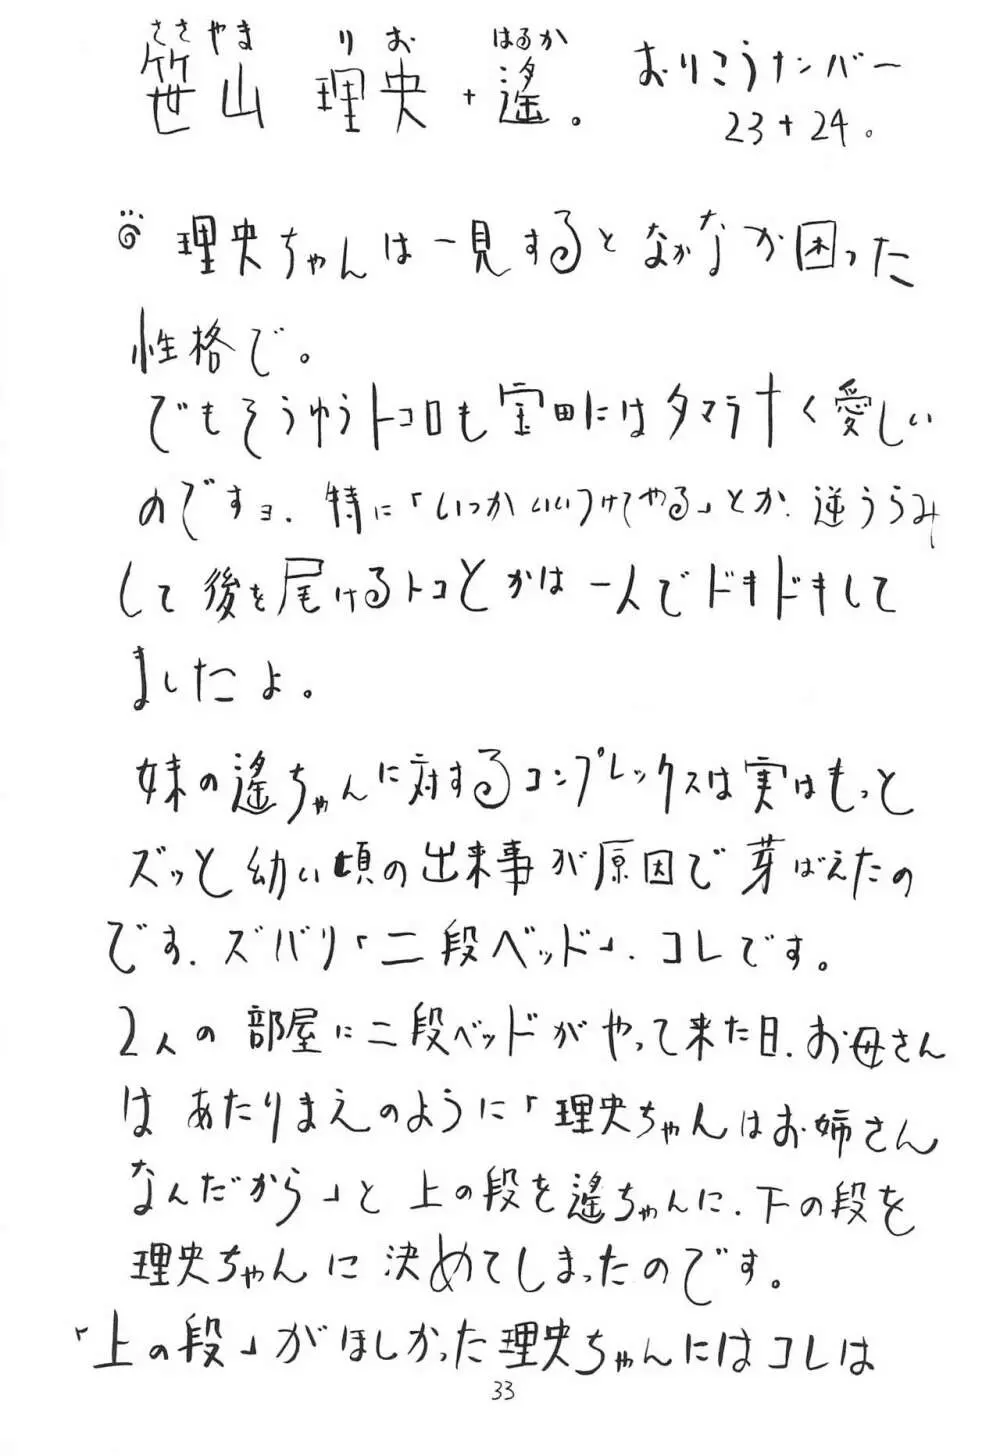 ささやま りお はるか
笹山 理央+遙。 おりこうナンバー
23+24。
理央ちゃんは一見するとなかなか困った
性格で。
でもそうゆうトコロも宝田にはタマラナく愛しい
のですヨ. 特に「いつかいいつけてやる」とか. 逆うらみ
して後を尾けるトコとかは一人でドキドキして
ましたよ。
妹の遙ちゃんに対するコンプレックスは実はもっと
ズッと幼い頃の出来事が原因で芽ばえたの
です. ズバリ「二段ベッド」. コレです。
2人の部屋に二段ベッドがやって来た日. お母さん
はあたりまえのように「理央ちゃんはお姉さん
なんだから」と上の段を遙ちゃんに. 下の段を
理央ちゃんに決めてしまったのです。
「上の段」がほしかった理央ちゃんにはコレは
33